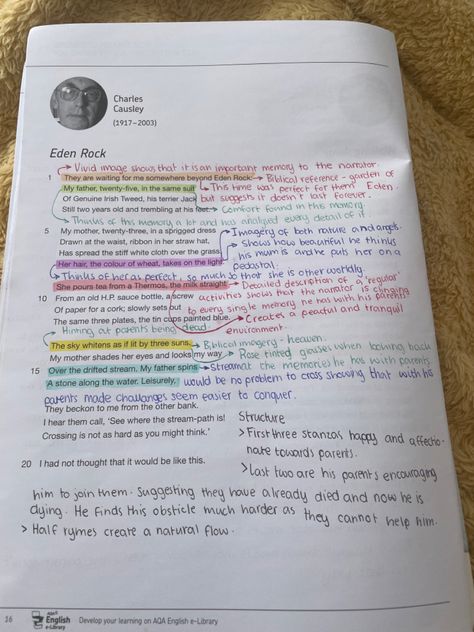 Charles
Causley
(1917–2003)
Eden Rock
→ Vivid image shows that it is an important memory to the narrator.
1 They are waiting for me somewhere beyond Eden Rock: → Biblical reference - garden of Eden
My father, twenty-five, in the same suit → This time was perfect for them
Of Genuine Irish Tweed, his terrier Jack but suggests it doesn't last forever.
Still two years old and trembling at his feet. → Comfort found in this memory.
→ Thinks of this memory a lot and has analysed every detail of it
5 My mother, twenty-three, in a sprigged dress → Imagery of both nature and angels.
Drawn at the waist, ribbon in her straw hat, → Shows how beautiful he thinks
Has spread the stiff white cloth over the grass. his mum is and he puts her on a
Her hair, the colour of wheat, takes on the light. pedastal.
→ Thinks of her as perfect, so much so that she is other worldly.
She pours tea from a Thermos, the milk straight → Detailed description of a 'regular'
10 From an old H.P. sauce bottle, a screw activities shows that the narrator is clinging
Of paper for a cork; slowly sets out to every single memory he has with his parents
The same three plates, the tin cups painted blue. → Creates a peaceful and tranquil
Hinting at parents being dead environment.
The sky whitens as if lit by three suns. → Biblical imagery - heaven.
My mother shades her eyes and looks my way → Rose tinted glasses when looking back
15 Over the drifted stream. My father spins → Stream at the memories he has with parents.
A stone along the water. Leisurely, would be no problem to cross showing that with his
parents made challanges seem easier to conquer.
They beckon to me from the other bank.
I hear them call, 'See where the stream-path is!
Crossing is not as hard as you might think.'
20 I had not thought that it would be like this.
Structure
> First three stanzas happy and affectio-
nate towards parents.
> Last two are his parents encouraging
him to join them. Suggesting they have already died and now he is
dying. He finds this obstacle much harder as they cannot help him.
> Half rymes create a natural flow.
16
AQA
English
e-Library
Develop your learning on AQA English e-Library